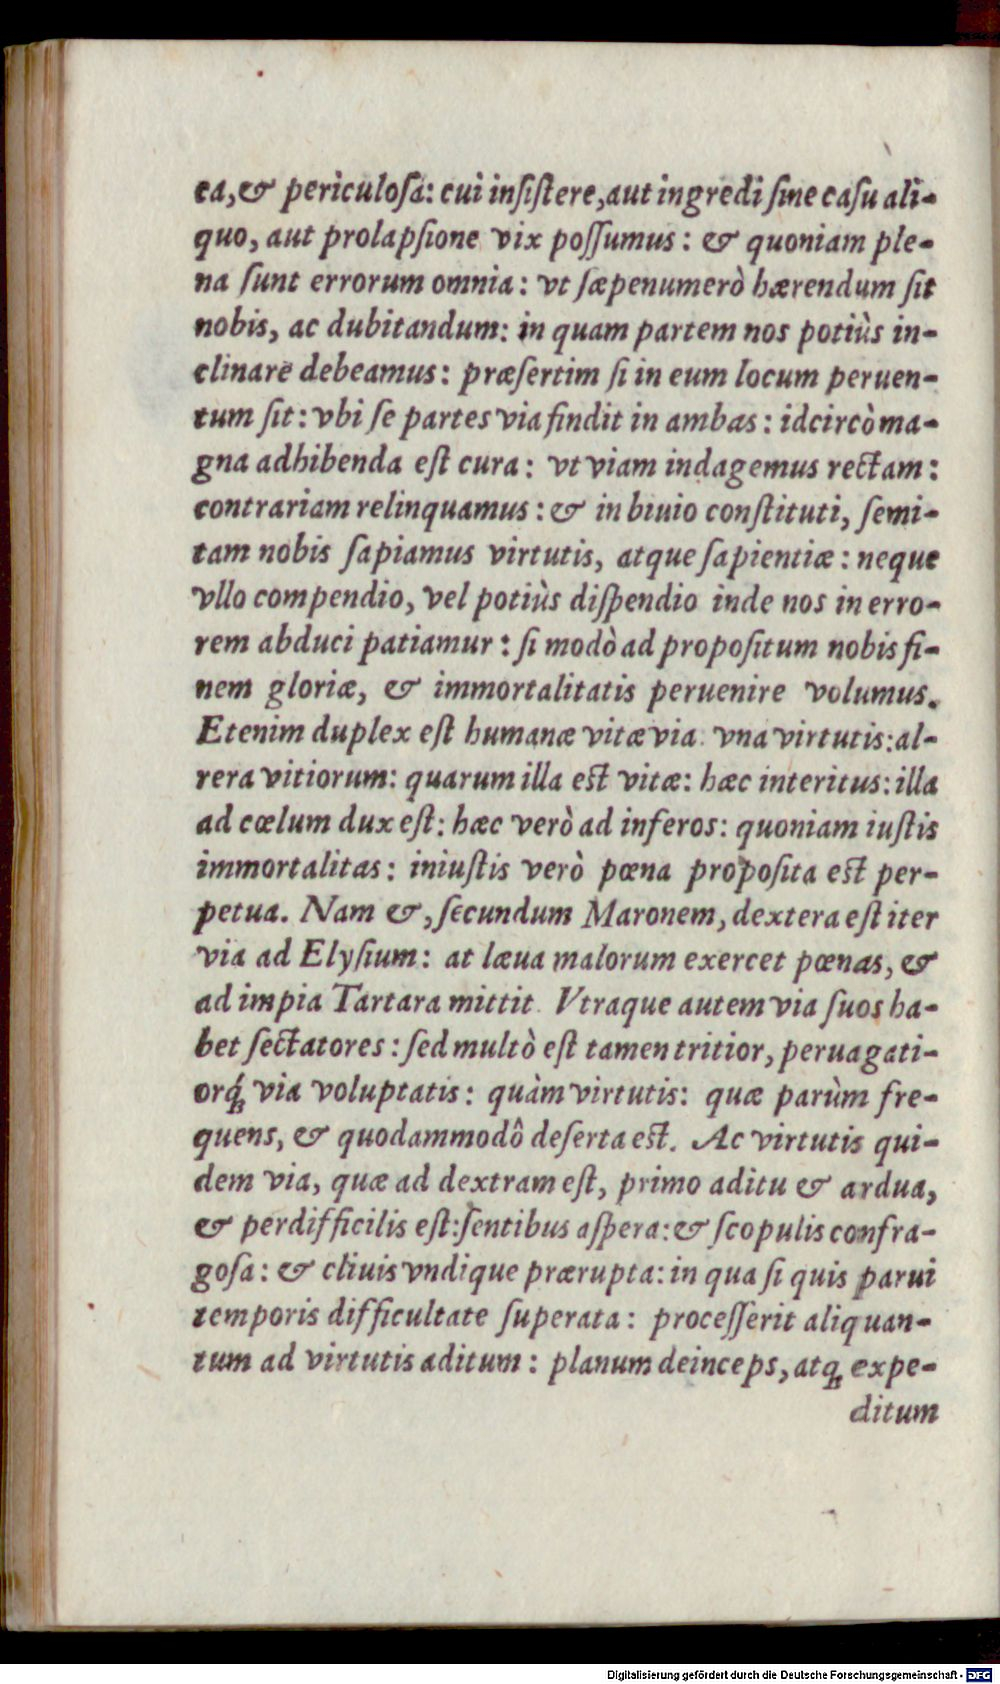 ca, & periculoſa: cui inſiſtere, aut ingredi ſine caſu ali-
quo, aut prolapſione vix poſſumus: & quoniam ple-
na ſunt errorum omnia: vt ſæpenumerò hærendum ſit
nobis, ac dubitandum: in quam partem nos potiùs in-
clinare debeamus: præſertim ſi in eum locum peruen-
tum ſit: vbi ſe partes via findit in ambas: idcircò ma-
gna adhibenda eſt cura: vt viam indagemus rectam:
contrariam relinquamus: & in biuio conſtituti, ſemi-
tam nobis ſapiamus virtutis, atque ſapientiæ: neque
vllo compendio, vel potiùs diſpendio inde nos in erro-
rem abduci patiamur: ſi modò ad propoſitum nobis fi-
nem gloriæ, & immortalitatis peruenire volumus.
Etenim duplex eſt humanæ vitæ via. vna virtutis: al-
rera vitiorum: quarum illa eſt vitæ: hæc interitus: illa
ad cœlum dux eſt: hæc verò ad inferos: quoniam iuſtis
immortalitas: iniuſtis verò pœna propoſita eſt per-
petua. Nam &, ſecundum Maronem, dextera eſt iter
via ad Elyſium: at læua malorum exercet pœnas, &
ad impia Tartara mittit. Vtraque autem via ſuos ha-
bet ſectatores: ſed multò eſt tamen tritior, peruagati-
orq́; via voluptatis: quàm virtutis: quæ parùm fre-
quens, & quodammodô deſerta eſt. Ac virtutis qui-
dem via, quæ ad dextram eſt, primo aditu & ardua,
& perdifficilis eſt: ſentibus aſpera: & ſcopulis confra-
goſa: & cliuis vndique prærupta: in qua ſi quis parui
temporis difficultate ſuperata: proceſſerit aliquan-
tum ad virtutis aditum: planum deinceps, atq; expe-
ditum
Digitalisierung gefördert durch die Deutsche Forschungsgemeinschaft - DFG